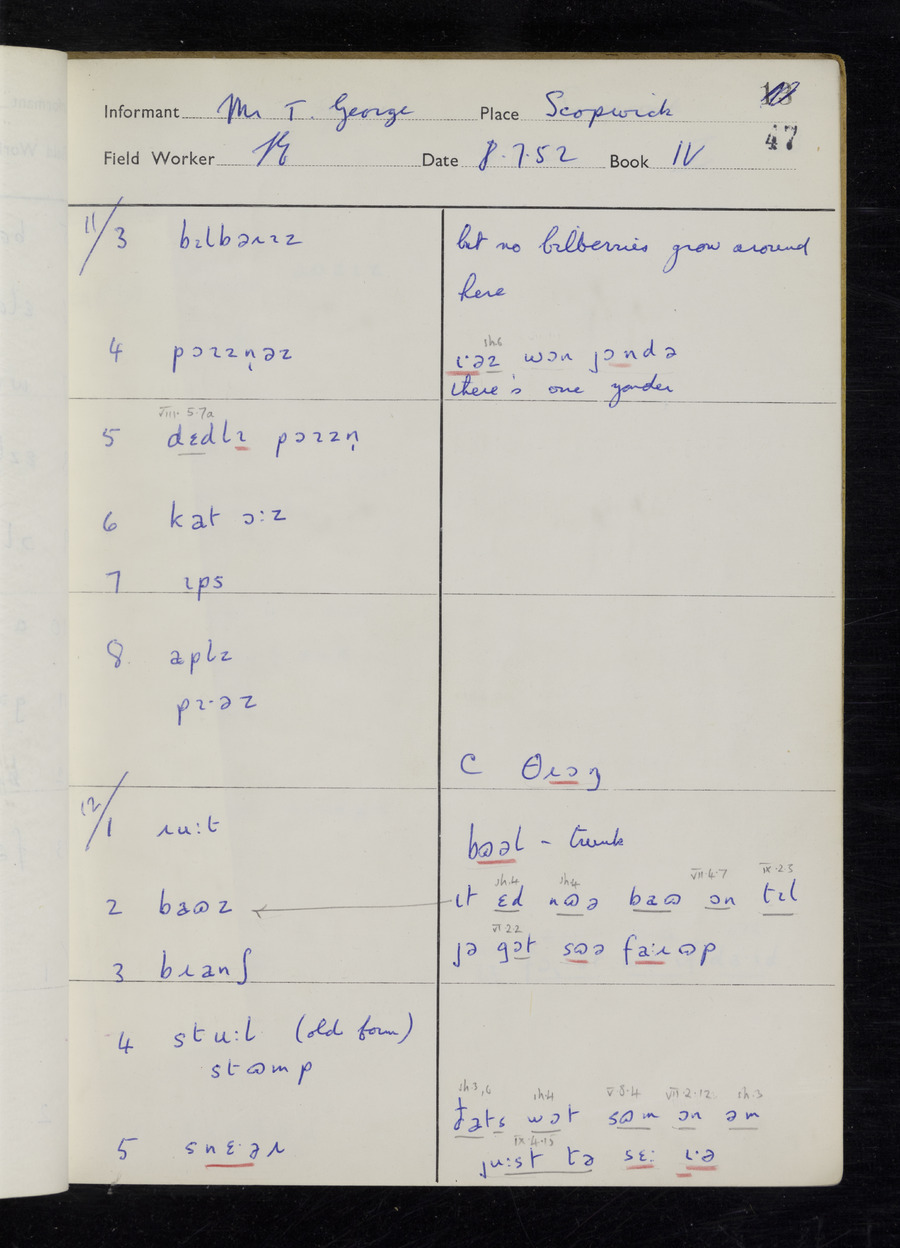 Informant Mr T. George Place Scopwick
47
Field Worker Date 8.7.52 Book IV
11/3 bɪlbəɹɪz but no bilberries grow around
here
sh.6
4 pɔɪzn̩əz ɪ·əz wɔn jɔndə
there's one yonder
VIII. 5.7a
5 dɛdlɪ pɔɪzn̩
6 kat ɔ:z
7 ɪps
8 aplz
pɪ·əz
C θɹɔŋ
12/1 ɹu:t bɷəl – trunk
sh.4 sh.4 VII.4.7 IX.2.3
2 baɷz ɪt ɛd nɷə baɷ ɔn tɪl
VI 2.2
jə gɔt sɷə fa:ɹ ɷp
3 bɹanʃ
4 stu:l (old form)
stɷmp
sh.3,6 sh.4 V.8.4 VII.2.12 sh.3
ðats wɔt sɷm ɔn əm
IX.4.15
5 snɛ·əɹ ju:st tə sɛ: ɪ·ə